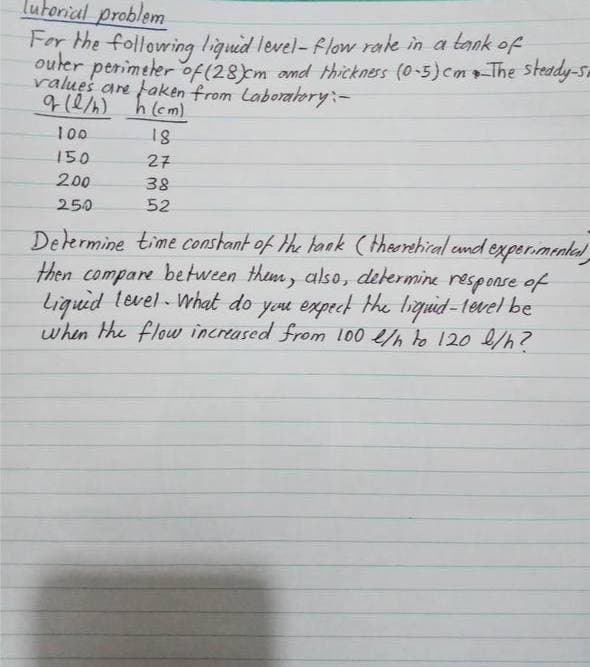 Tutorial problem
For the following liquid level-flow rate in a tank of
outer perimeter of (28)cm and thickness (0.5)cm. The steady-
values are taken from Laboratory:-
q (l/h) h (cm)
100 18
150 27
200 38
250 52
Determine time constant of the tank (theoretical and experimental)
then compare between them, also, determine response of
Liquid level. What do you expect the liquid-level be
when the flow increased from 100 l/h to 120 l/h?